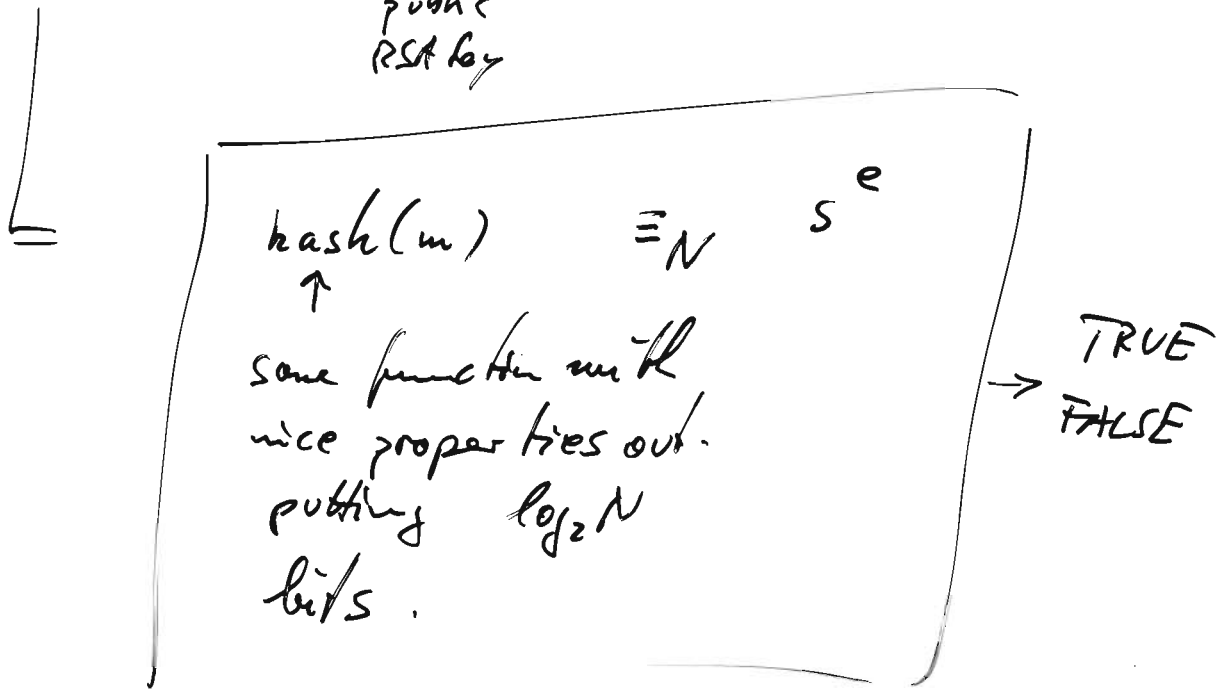 public
RSA key
hash(m) ≡_N s^e
↑
some function with
nice properties out-
putting log₂ N
bits.
→ TRUE
FALSE